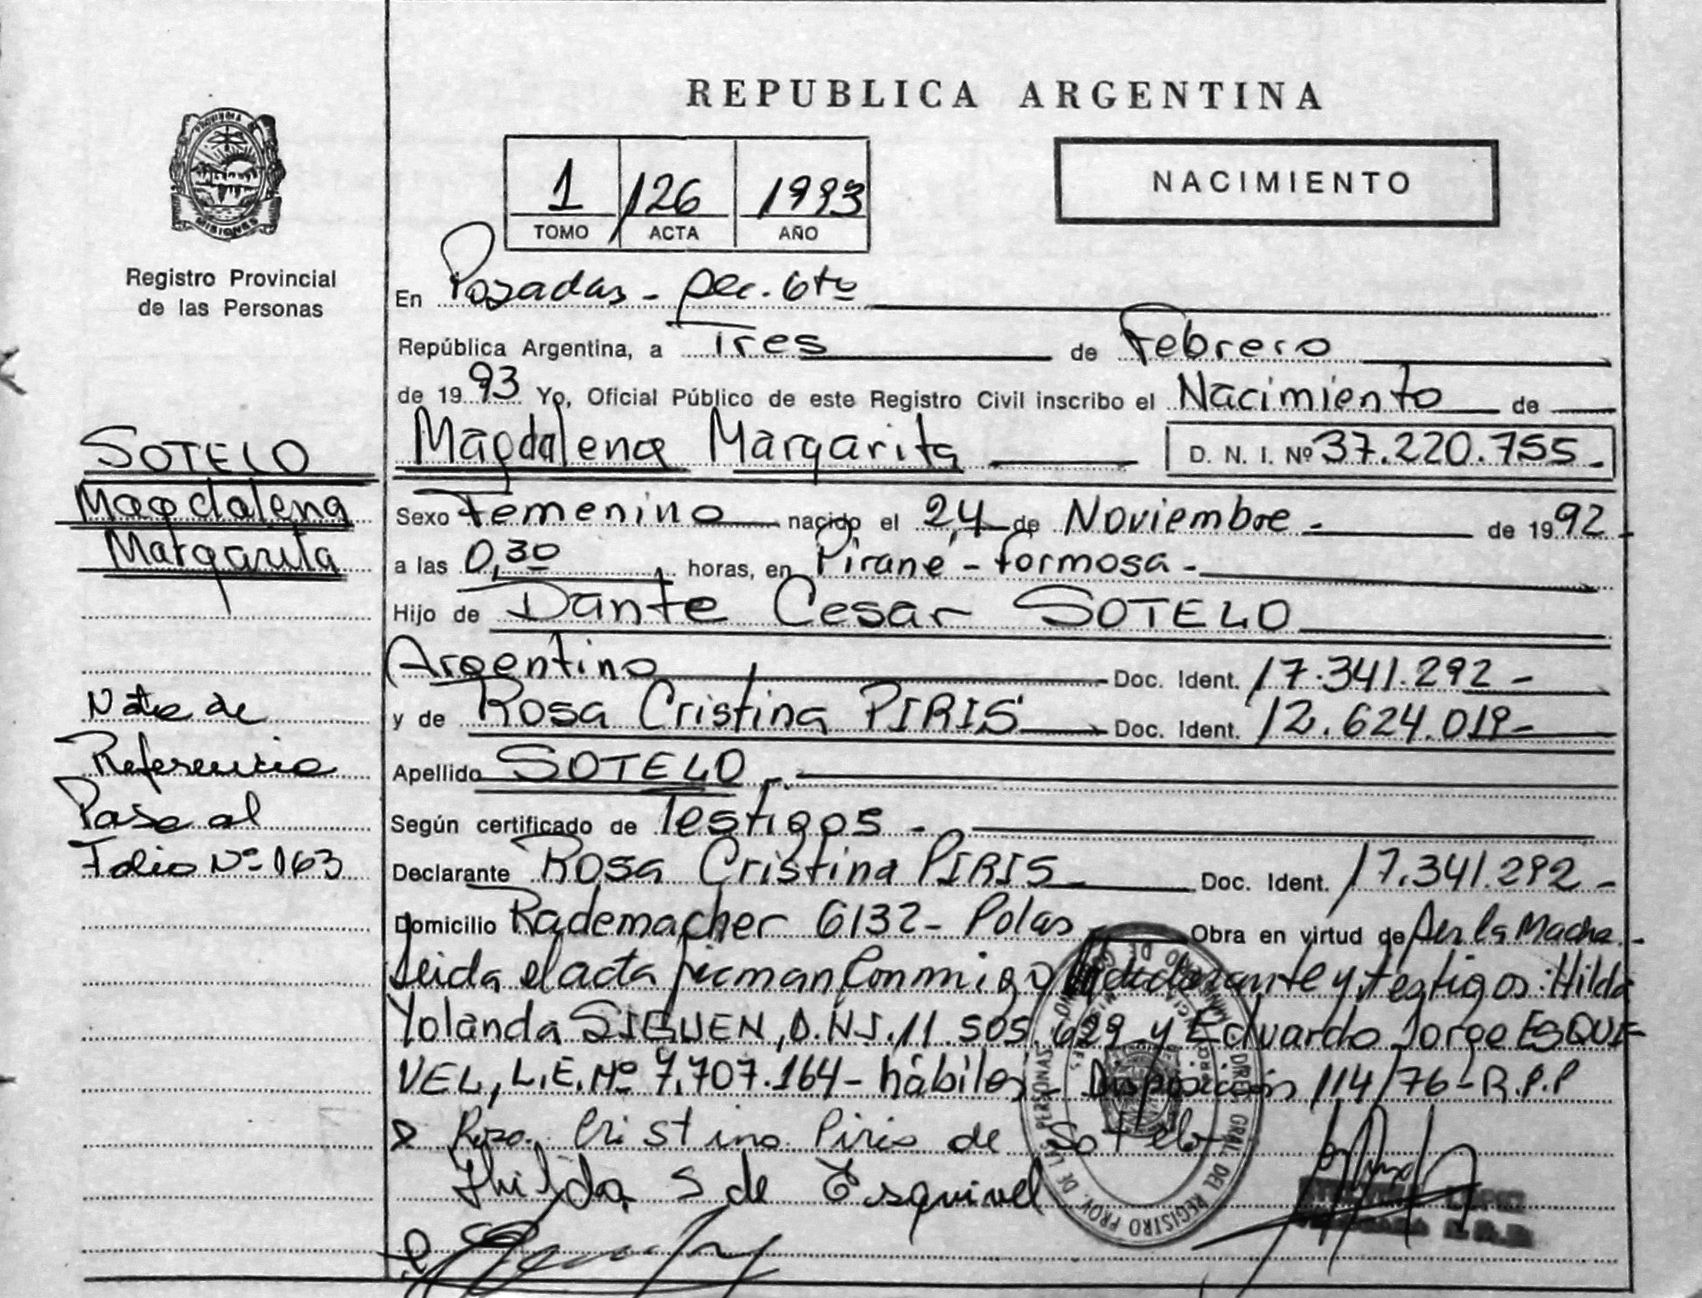 REPUBLICA ARGENTINA
NACIMIENTO
1 126 1993
TOMO ACTA AÑO
PROVINCIA DE MISIONES
Registro Provincial
de las Personas
En Posadas - Sec. 6to
República Argentina, a Tres de Febrero
de 1993 Yo, Oficial Público de este Registro Civil inscribo el Nacimiento de
Magdalena Margarita D. N. I. Nº 37.220.755.-
Sexo Femenino nacido el 24 de Noviembre - de 1992
a las 0,30 horas, en Pirané - Formosa -
Hijo de Dante Cesar SOTELO
Argentino Doc. Ident. 17.341.292 -
y de Rosa Cristina PIRIS Doc. Ident. 12.624.019-
Apellido SOTELO -
Según certificado de Testigos -
Declarante Rosa Cristina PIRIS - Doc. Ident. 17.341.292 -
Domicilio Rademacher 6132 - Pdas Obra en virtud de Ser la Madre.-
Leida el acta firman Conmigo la declarante y testigos: Hilda
Yolanda SIGUEN, D.N.I. 11.505.629 y Eduardo Jorge ESQUI-
VEL, L.E. Nº 7.707.164 - hábiles - Disposición 114/76 - R.P.P
Rosa Cristina Piris de Sotelo
Hilda S de Esquivel
SOTELO
Magdalena
Margarita
Nota de
Referencia
Pase al
Folio Nº 163
DIREC. GRAL. DEL REGISTRO PROV. DE LAS PERSONAS